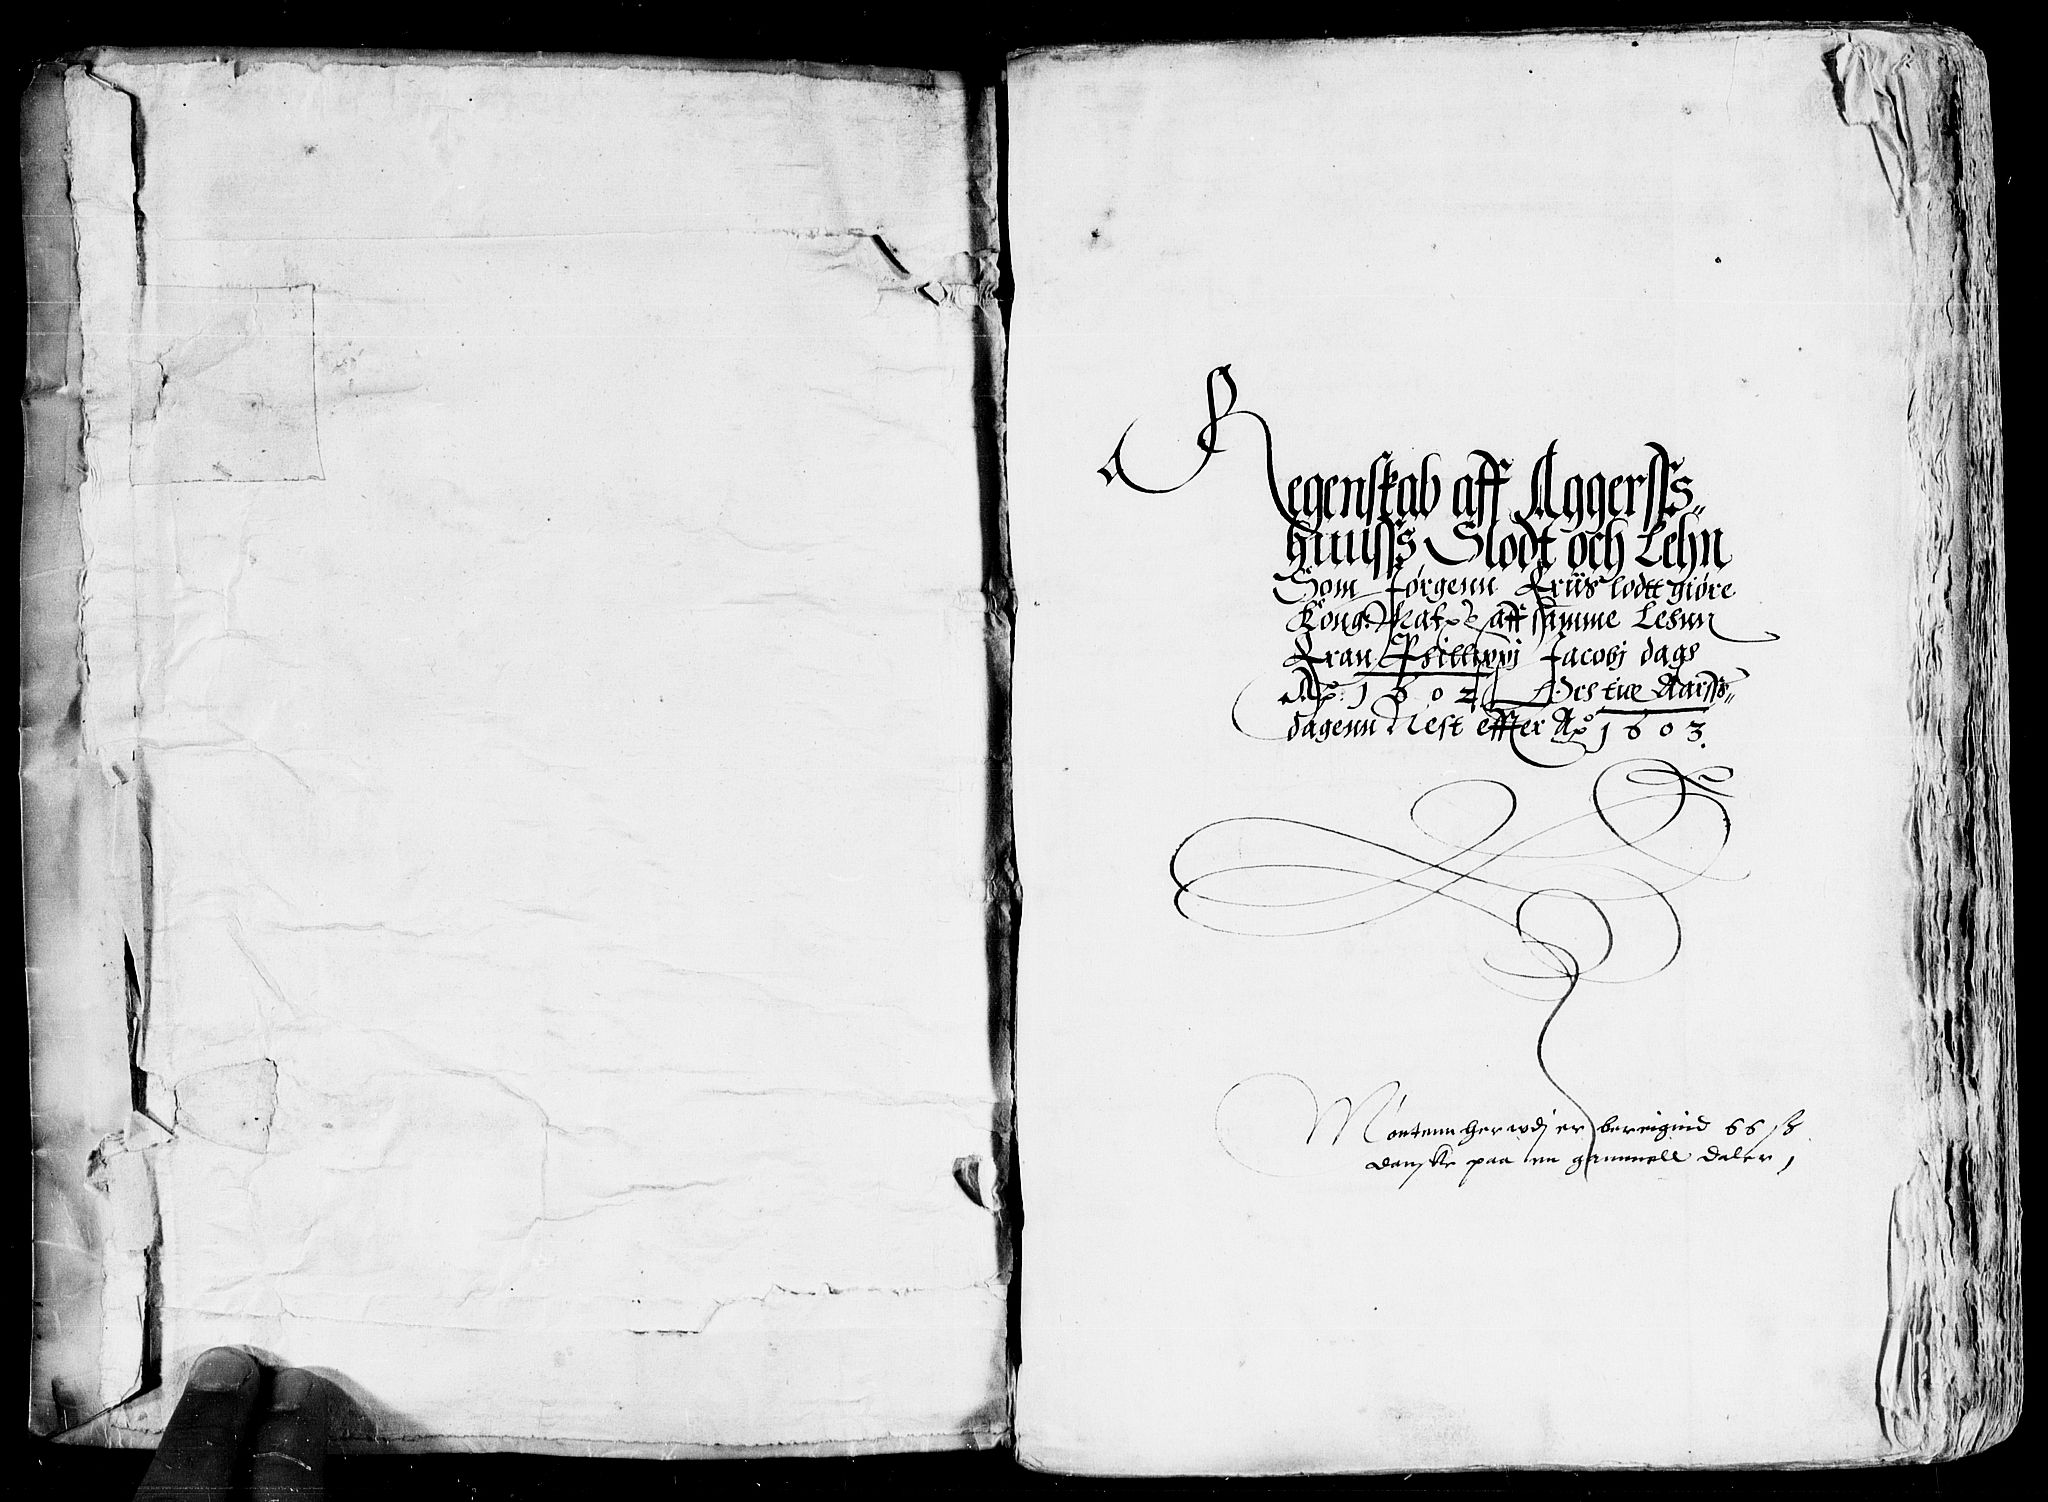 Regenskab aff Aggerss-
huuss Slodt och Lehn
Som Jørgenn Friis lodtt giøre
Kong: Mat: aff samme Lehnn
Fran Phillippi Jacobj dags
Ao: 1602 Och tiil Aarss-
dagenn Nest effter Ao 1603.
Møntenn her vdj er bereignid 66 ß
danske paa en gammell daler,